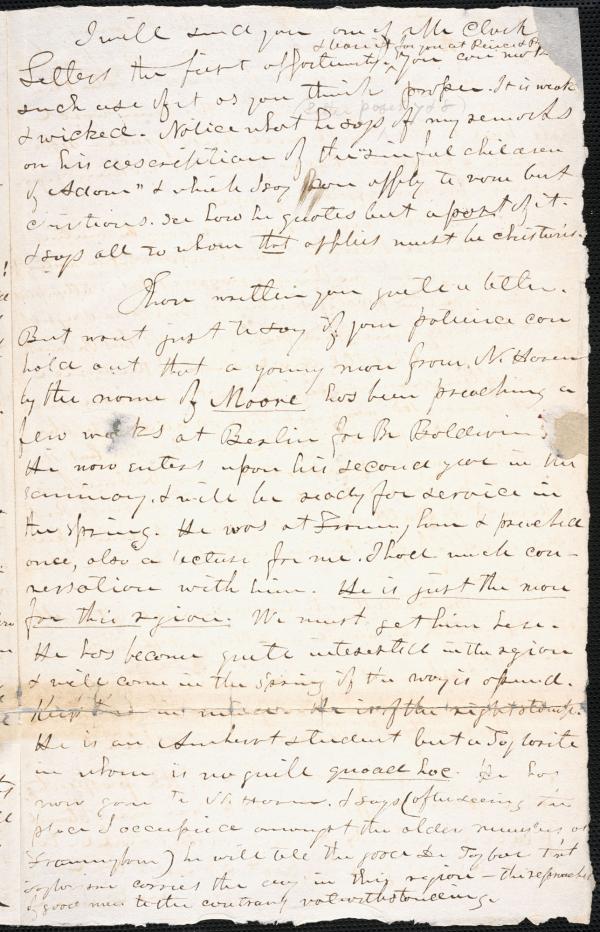 I will send you one of Mr Clark
Letters the first opportunity, & leave it for you at Peirce & P
you can make
such use of it as you think proper. It is weak
& wicked. Notice what he says of my remarks
on his description of the "sinful children
of Adam" & which I say can apply to none but
christians. See how he quotes but a part of it.
& says all to whom that applies must be christians.
I have written you quite a letter.
But want just to say if your patience can
hold out that a young man from N. Haven
by the name of Moore has been preaching a
few weeks at Berlin for Br Baldwin
He now enters upon his second year in the
seminary. & will be ready for service in
the spring. He was at Framingham & preached
once, also a lecture for me. I had much con-
versation with him. He is just the man
for this region. We must get him here.
He has become quite interested in the region
& will come in the spring if the way is opened.
Keep in mind. He is of the right stamp.
He is an Amherst student but a Taylorite
in whom is no guile quoad hoc. He has
now gone to N. Haven. & says (after seeing the
place I occupied amongst the older ministers at
Framingham) he will tell the good Dr Taylor that
Taylorism carries the day in this region - the reproaches
of good men to the contrary notwithstanding.